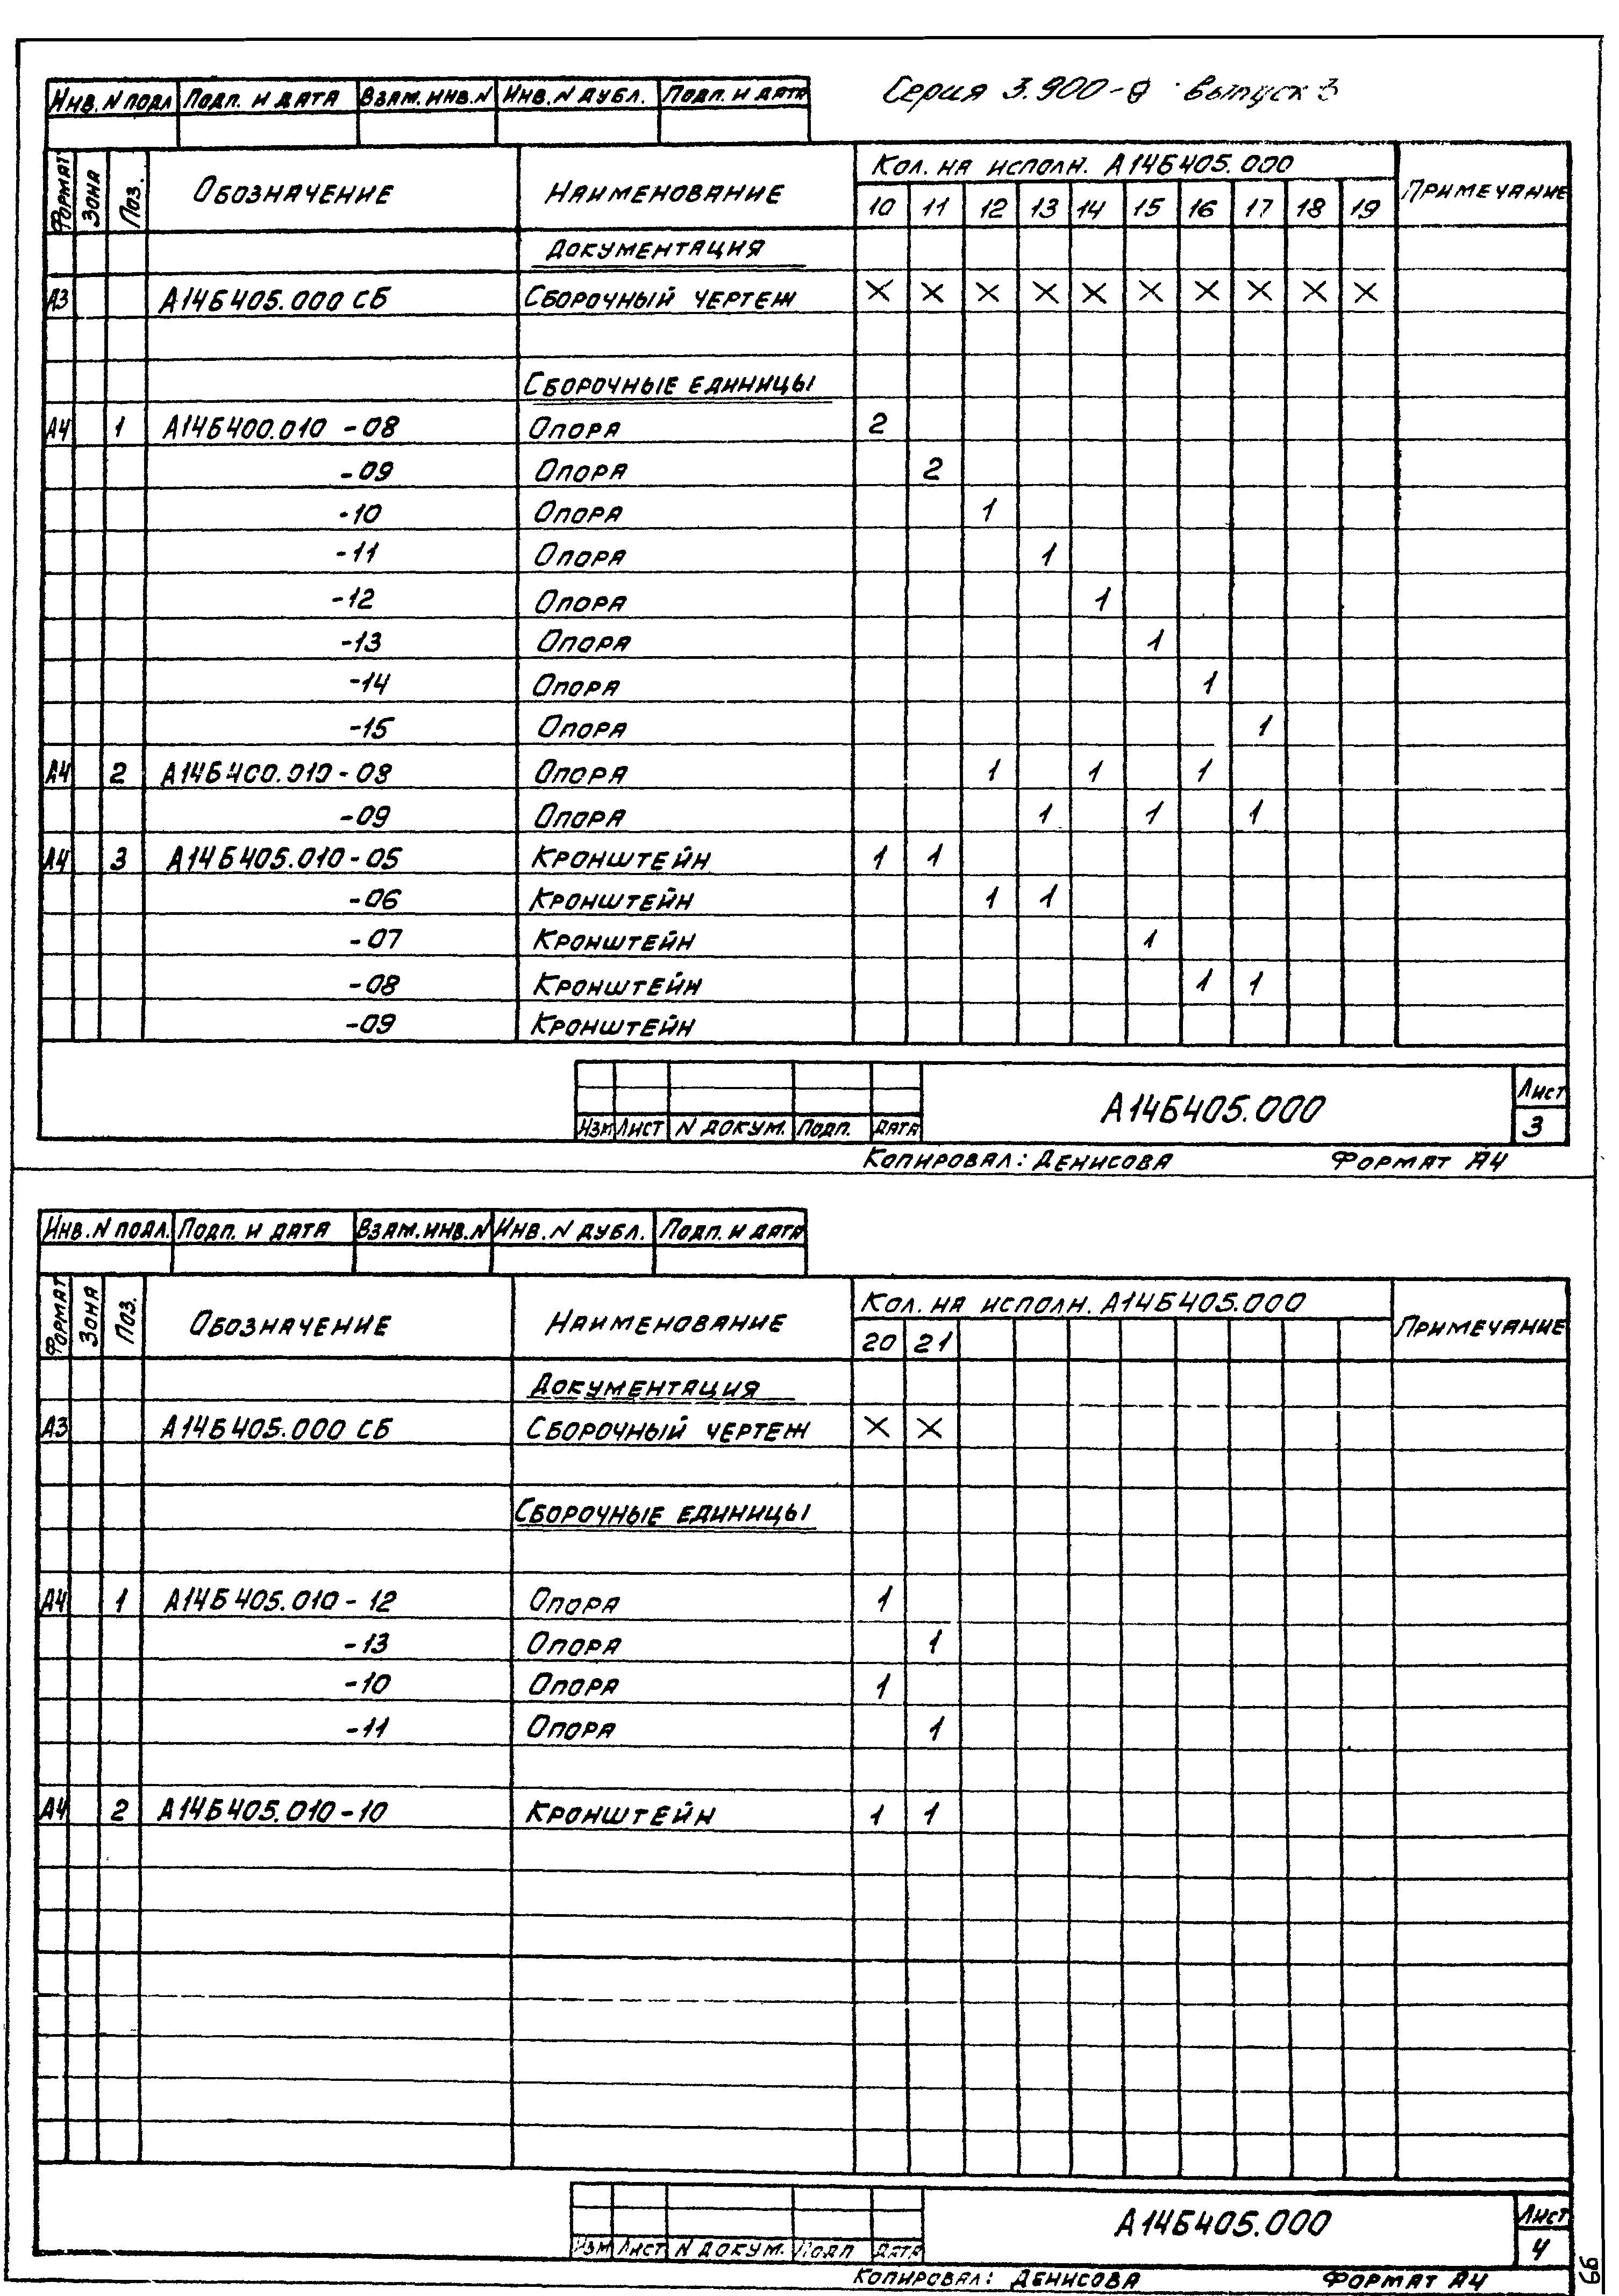 Серия 3.900-9 выпуск 3
Инв. N подл Подп. и дата Взам. инв. N Инв. N дубл. Подп. и дата
Формат Зона Поз. Обозначение Наименование Кол. на исполн. А14Б405.000 Примечание
10 11 12 13 14 15 16 17 18 19
Документация
А3 А14Б405.000 СБ Сборочный чертеж X X X X X X X X X X
Сборочные единицы
А4 1 А14Б400.010 -08 Опора 2
-09 Опора 2
-10 Опора 1
-11 Опора 1
-12 Опора 1
-13 Опора 1
-14 Опора 1
-15 Опора 1
А4 2 А14Б400.010-08 Опора 1 1 1
-09 Опора 1 1 1
А4 3 А14Б405.010-05 Кронштейн 1 1
-06 Кронштейн 1 1
-07 Кронштейн 1
-08 Кронштейн 1 1
-09 Кронштейн
А14Б405.000 Лист
Изм Лист N докум. Подп. Дата 3
Копировал: Денисова Формат А4
Инв. N подл. Подп. и дата Взам. инв. N Инв. N дубл. Подп. и дата
Формат Зона Поз. Обозначение Наименование Кол. на исполн. А14Б405.000 Примечание
20 21
Документация
А3 А14Б405.000 СБ Сборочный чертеж X X
Сборочные единицы
А4 1 А14Б405.010-12 Опора 1
-13 Опора 1
-10 Опора 1
-11 Опора 1
А4 2 А14Б405.010-10 Кронштейн 1 1
А14Б405.000 Лист
Изм Лист N докум. Подп Дата 4
Копировал: Денисова Формат А4
66